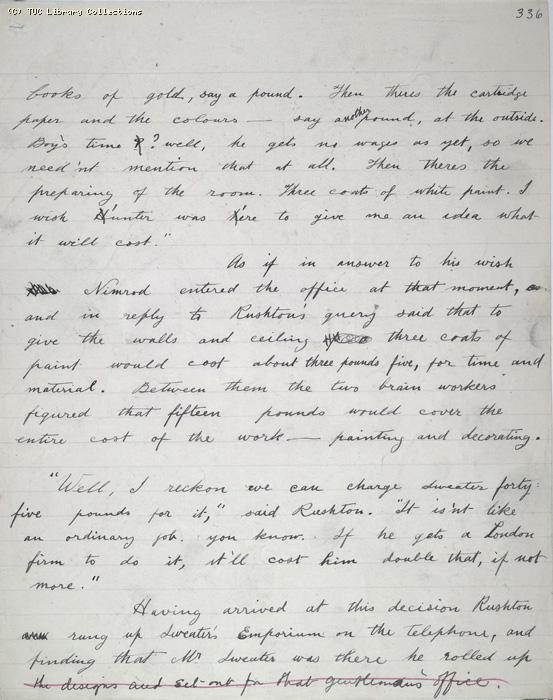 (C) TUC Library Collections
336
books of gold, say a pound. Then theres the cartridge
paper and the colours — say another pound, at the outside.
Boy's time ? well, he gets no wages as yet, so we
need'nt mention that at all. Then theres the
preparing of the room. Three coats of white paint. I
wish Hunter was here to give me an idea what
it will cost."
As if in answer to his wish
Nimrod entered the office at that moment,
and in reply to Rushton's query said that to
give the walls and ceiling three coats of
paint would cost about three pounds five, for time and
material. Between them the two brain workers
figured that fifteen pounds would cover the
entire cost of the work — painting and decorating.
"Well, I reckon we can charge Sweater forty-
five pounds for it," said Rushton. "It is'nt like
an ordinary job. you know. If he gets a London
firm to do it, it'll cost him double that, if not
more."
Having arrived at this decision Rushton
rung up Sweater's Emporium on the telephone, and
finding that Mr Sweater was there he rolled up
the designs and set out for that gentleman's office.